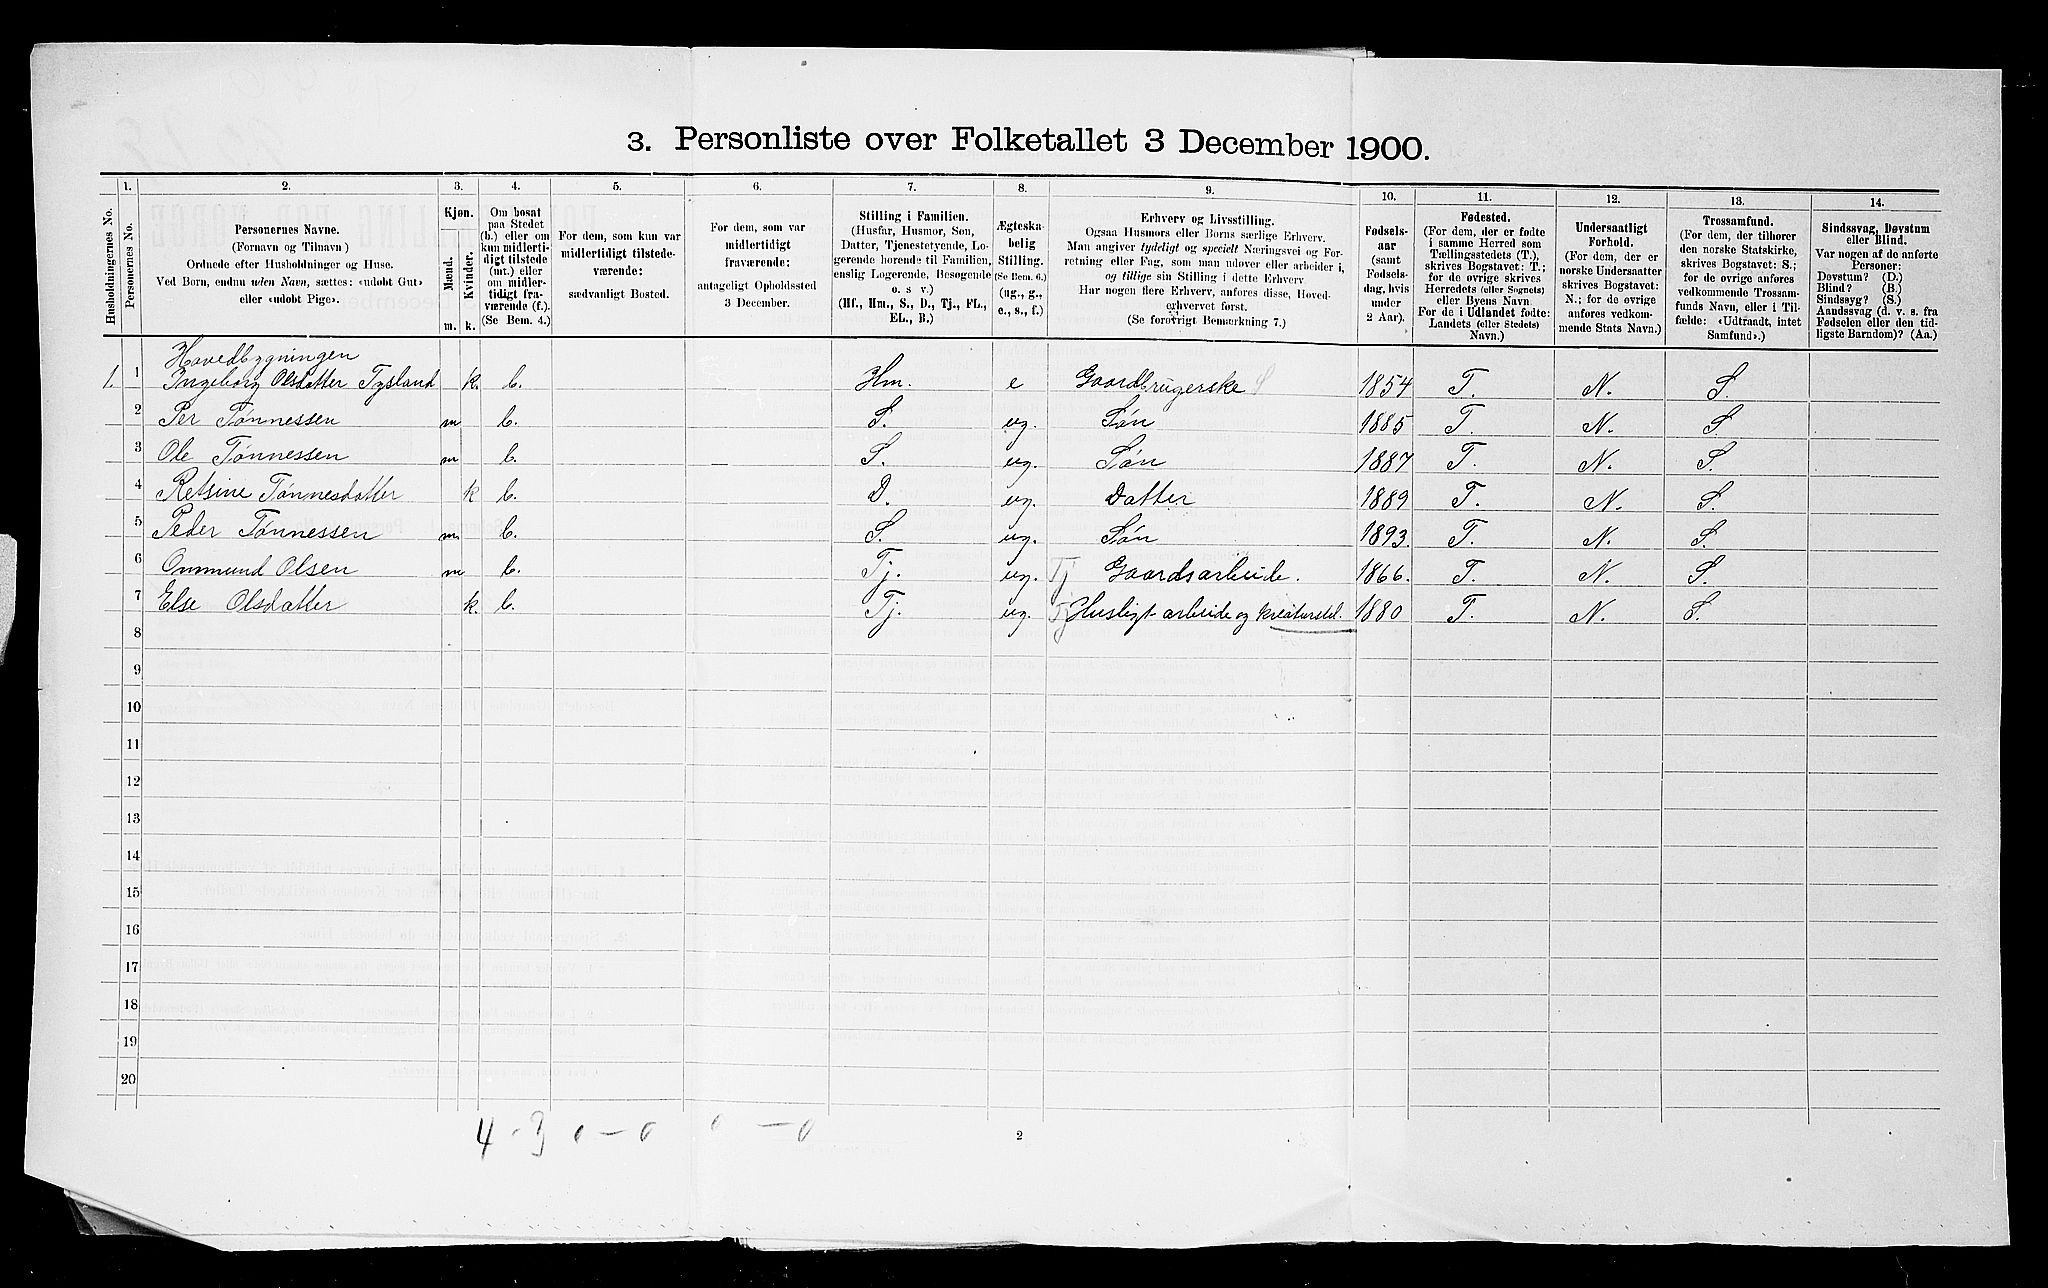 3. Personliste over Folketallet 3 December 1900.
1. 2. 3. 4. 5. 6. 7. 8. 9. 10. 11. 12. 13. 14.
Husholdningernes No.
Personernes No.
Personernes Navne.
(Fornavn og Tilnavn)
Ordnede efter Husholdninger og Huse.
Ved Børn, endnu uden Navn, sættes: «udøbt Gut»
eller «udøbt Pige».
Kjøn.
Mænd.
m.
Kvinder.
k.
Om bosat
paa Stedet
(b.) eller om
kun midlerti-
digt tilstede
(mt.) eller
om midler-
tidigt fra-
værende (f.).
(Se Bem. 4.)
For dem, som kun var
midlertidigt tilstede-
værende:
sædvanligt Bosted.
For dem, som var
midlertidigt
fraværende:
antageligt Opholdssted
3 December.
Stilling i Familien.
(Husfar, Husmor, Søn,
Datter, Tjenestetyende, Lo-
gerende hørende til Familien,
enslig Logerende, Besøgende
o. s v.)
(Hf., Hm., S., D., Tj., FL.,
EL., B.)
Ægteska-
belig
Stilling.
(Se Bem. 6.)
(ug., g.,
e., s., f.)
Erhverv og Livsstilling.
Ogsaa Husmors eller Børns særlige Erhverv.
Man angiver tydeligt og specielt Næringsvei og For-
retning eller Fag, som man udøver eller arbeider i,
og tillige sin Stilling i dette Erhverv.
Har nogen flere Erhverv, anføres disse, Hoved-
erhvervet først.
(Se forøvrigt Bemærkning 7.)
Fødsels-
aar
(samt
Fødsels-
dag, hvis
under
2 Aar).
Fødested.
(For dem, der er fødte
i samme Herred som
Tællingsstedets (T.),
skrives Bogstavet: T.;
for de øvrige skrives
Herredets (eller Sognets)
eller Byens Navn.
For de i Udlandet fødte:
Landets (eller Stedets)
Navn.)
Undersaatligt
Forhold.
(For dem, der er
norske Undersaatter
skrives Bogstavet:
N.; for de øvrige
anføres vedkom-
mende Stats Navn.)
Trossamfund.
(For dem, der tilhører
den norske Statskirke,
skrives Bogstavet: S.;
for de øvrige anføres
vedkommende Trossam-
funds Navn, eller i Til-
fælde: «Udtraadt, intet
Samfund».)
Sindssvag, Døvstum
eller Blind.
Var nogen af de anførte
Personer:
Døvstum? (D.)
Blind? (B.)
Sindssyg? (S.)
Aandssvag (d. v. s. fra
Fødselen eller den tid-
ligste Barndom)? (Aa.)
Hovedbygningen
1. 1 Ingeborg Olsdatter Tysland k. b. Hm. e Gaardbrugerske S 1854 T. N. S.
2 Per Tønnessen m b. S. ug. Søn 1885 T. N. S
3 Ole Tønnessen m b. — S. ug. Søn 1887 T. N. S.
4 Retsine Tønnesdatter k b. D. ug. Datter 1889 T. N. S.
5 Peder Tønnessen m. b. S. ug. Søn 1893. T. N. S.
6 Ommund Olsen m b. Tj. ug. Tj Gaardsarbeide. 1866. T. N. S.
7 Else Olsdatter k. b. Tj. ug. Tj Husligt arbeide og kreaturstel. 1880 T. N. S.
8
9
10
11
12
13
14
15
16
17
18
19
20
4 - 3 0 — 0 0 — 0
2